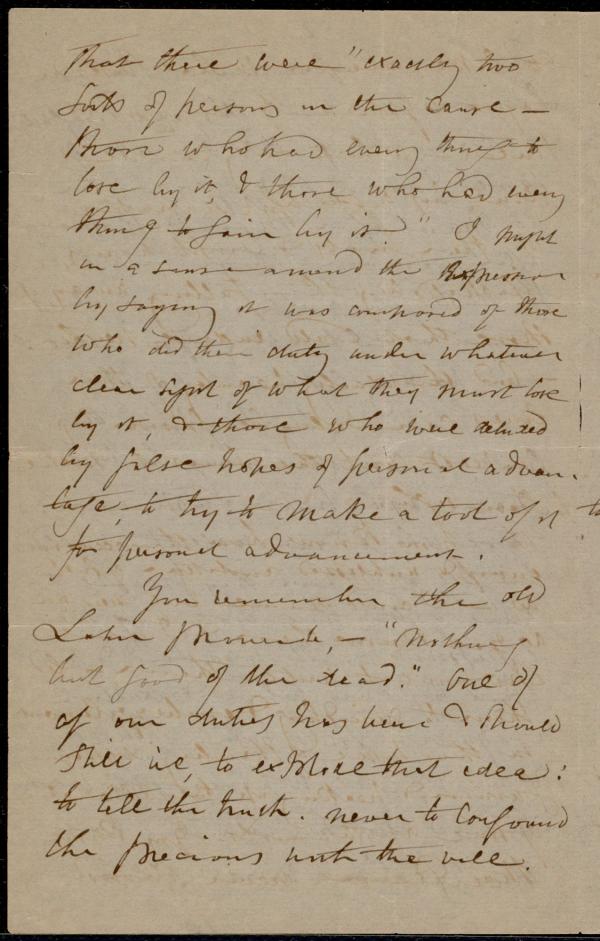 That there were "exactly two
sorts of persons in the cause —
those who had every thing to
lose by it, & those who had every
thing to gain by it." I might
in a sense amend the expression
by saying it was composed of those
who did their duty under whatever
clear sight of what they must lose
by it, & those who were deluded
by false hopes of personal advan-
tage, to try to make a tool of it
for personal advancement.
You remember the old
Latin proverb, — "nothing
but good of the dead." One of
of our duties has been & should
still be, to explode that idea:
to tell the truth. never to confound
the precious with the vile.